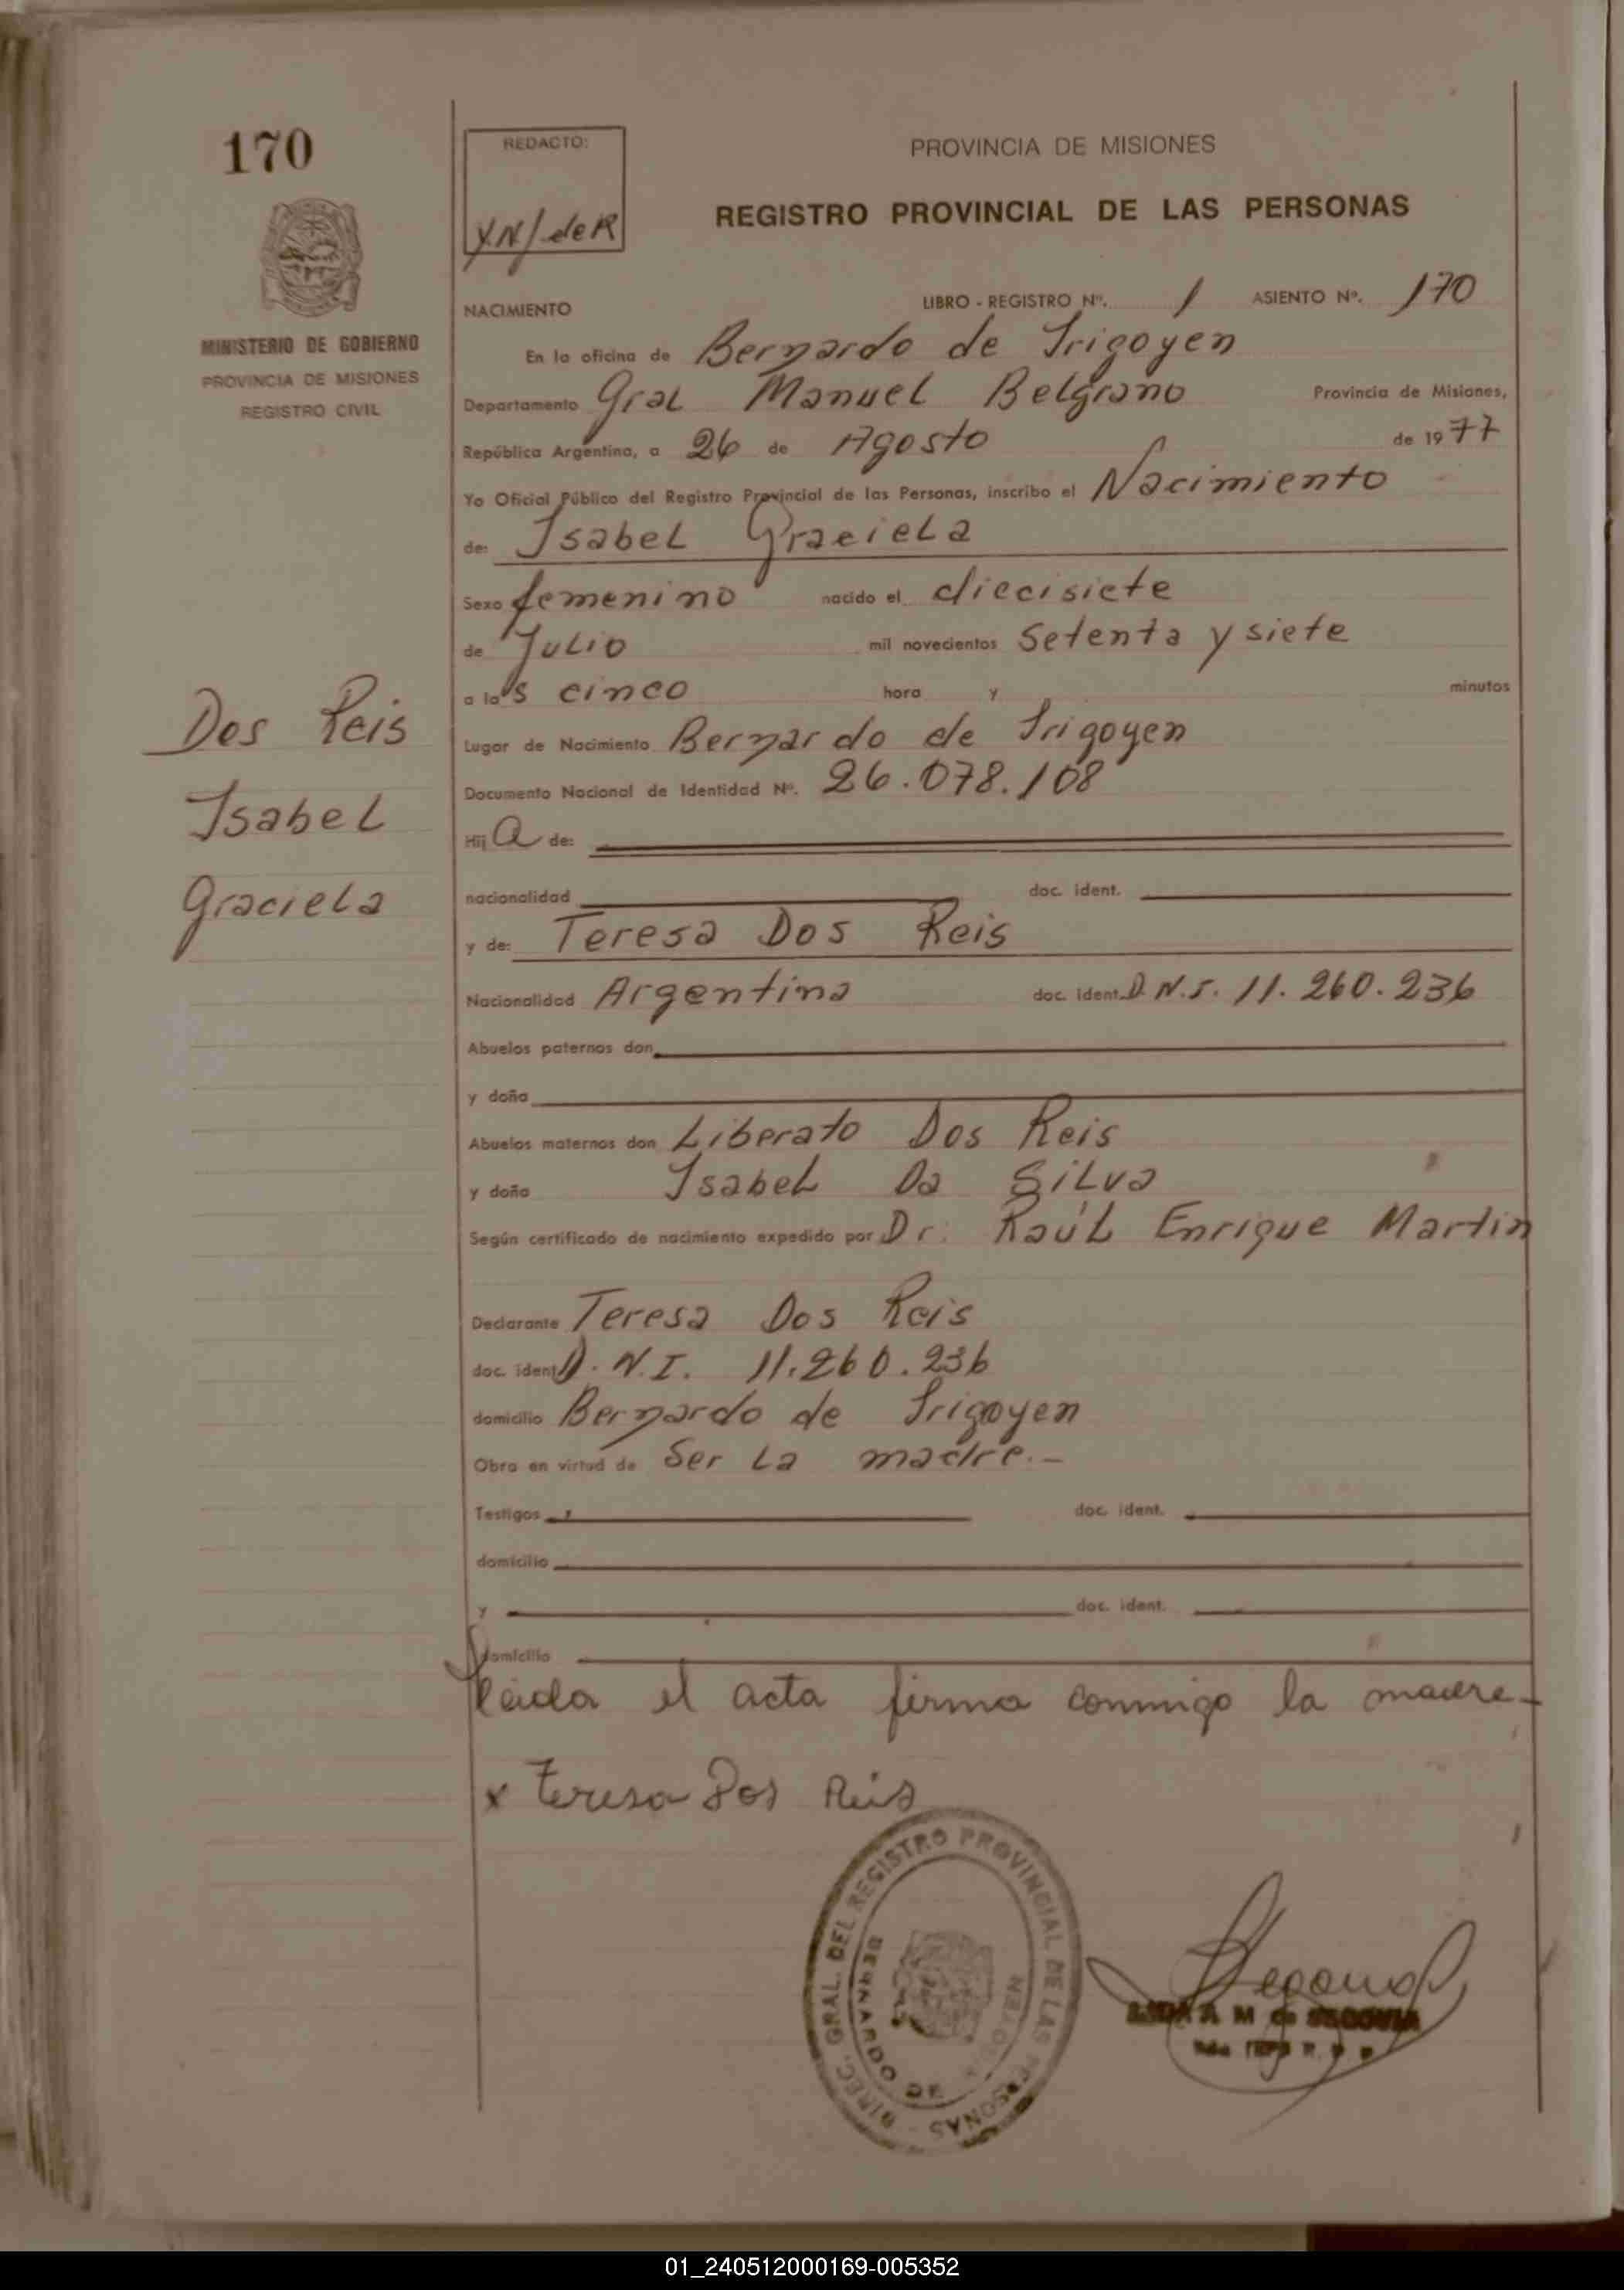 170
MINISTERIO DE GOBIERNO
PROVINCIA DE MISIONES
REGISTRO CIVIL
REDACTO:
Y.N/deR
PROVINCIA DE MISIONES
REGISTRO PROVINCIAL DE LAS PERSONAS
NACIMIENTO LIBRO - REGISTRO Nº. 1 ASIENTO Nº. 170
En la oficina de Bernardo de Irigoyen
Departamento Gral Manuel Belgrano Provincia de Misiones,
República Argentina, a 26 de Agosto de 1977
Yo Oficial Público del Registro Provincial de las Personas, inscribo el Nacimiento
de: Isabel Graciela
Sexo femenino nacido el diecisiete
de Julio mil novecientos Setenta y siete
a las cinco hora y minutos
Lugar de Nacimiento Bernardo de Irigoyen
Documento Nacional de Identidad Nº. 26.078.108
Hija de:
nacionalidad doc. ident.
y de: Teresa Dos Reis
Nacionalidad Argentina doc. ident. D.N.I. 11.260.236
Abuelos paternos don
y doña
Abuelos maternos don Liberato Dos Reis
y doña Isabel Da Silva
Según certificado de nacimiento expedido por Dr. Raúl Enrique Martin
Declarante Teresa Dos Reis
doc. ident D.N.I. 11.260.236
domicilio Bernardo de Irigoyen
Obra en virtud de Ser La madre.-
Testigos doc. ident.
domicilio
y doc. ident.
domicilio
Leida el acta firma conmigo la madre-
x Teresa Dos Reis
Dos Reis
Isabel
Graciela
DIREC. GRAL. DEL REGISTRO PROVINCIAL DE LAS PERSONAS -
BERNARDO DE IRIGOYEN
Segovia
A M de SEGOVIA
01_240512000169-005352